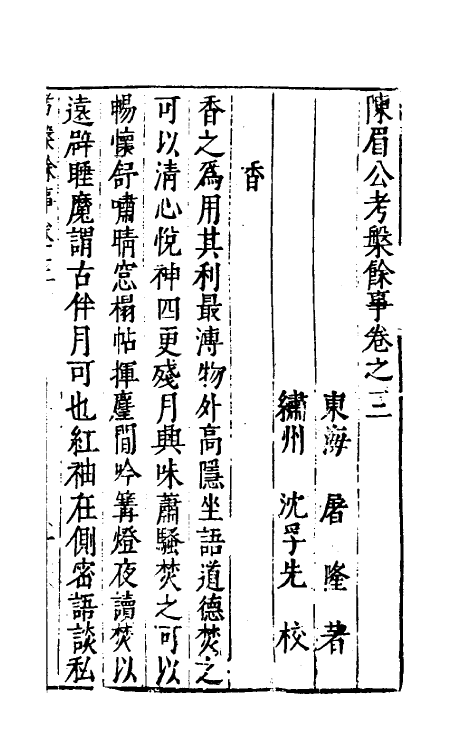 陳眉公考槃餘事卷之三
東海 屠隆 著
繡州 沈孚先 校
香
香之爲用其利最溥物外高隱坐語道德焚之
可以清心悅神四更殘月興味蕭騷焚之可以
暢懷舒嘯晴窓榻帖揮麈閒吟篝燈夜讀焚以
遠辟睡魔謂古伴月可也紅袖在側密語談私